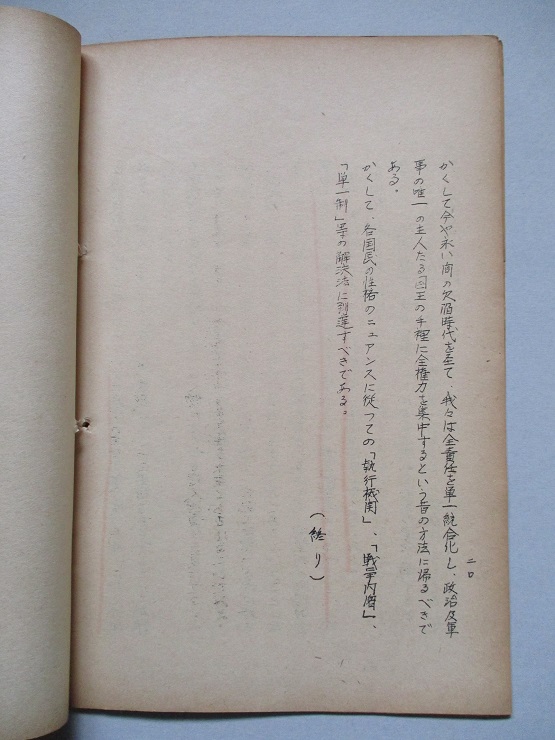 かくして今や永い間の欠陥時代を至て、我々は全責任を単一統合化し、政治及軍
事の唯一の主人たる国王の手裡に全権力を集中するという昔の方法に帰るべきで
ある。
かくして、各国民の性格のニュアンスに従つての「執行機関」、「戦争内閣」、
「単一制」等の解決法に到達すべきである。
(終り)
二〇